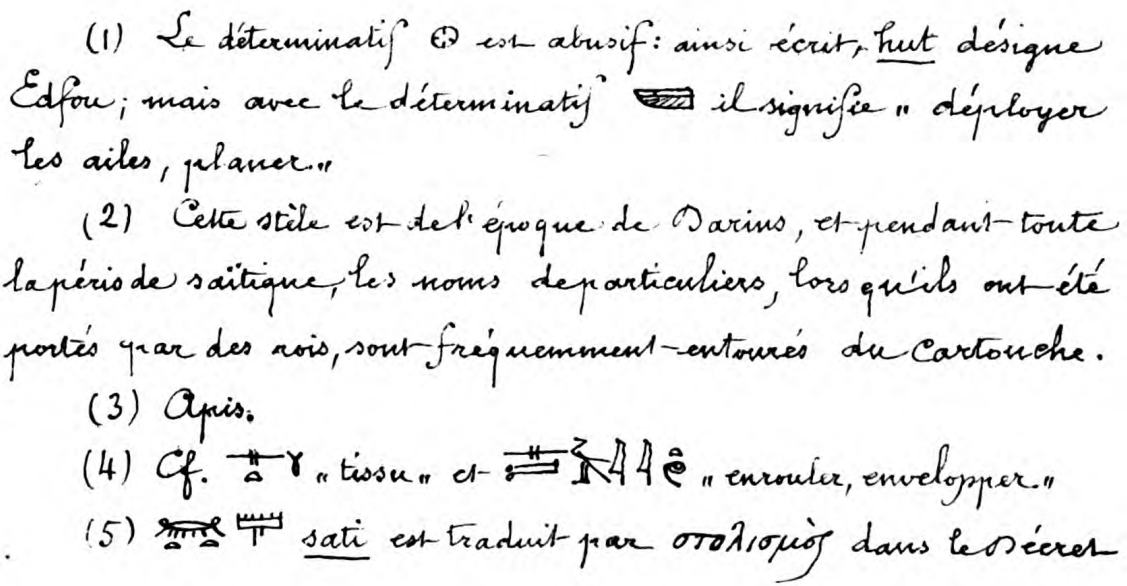 (1) Le déterminatif 𓊖 est abusif: ainsi écrit, hut désigne
Edfou; mais avec le déterminatif il signifie „ déployer
les ailes, planer.„
(2) Cette stèle est de l'époque de Darius, et pendant toute
la période saïtique, les noms de particuliers, lorsqu'ils ont été
portés par des rois, sont fréquemment entourés du Cartouche.
(3) Apis.
(4) Cf. „ tissu „ et „ enrouler, envelopper.„
(5) sati est traduit par στολισμὸς dans le Décret